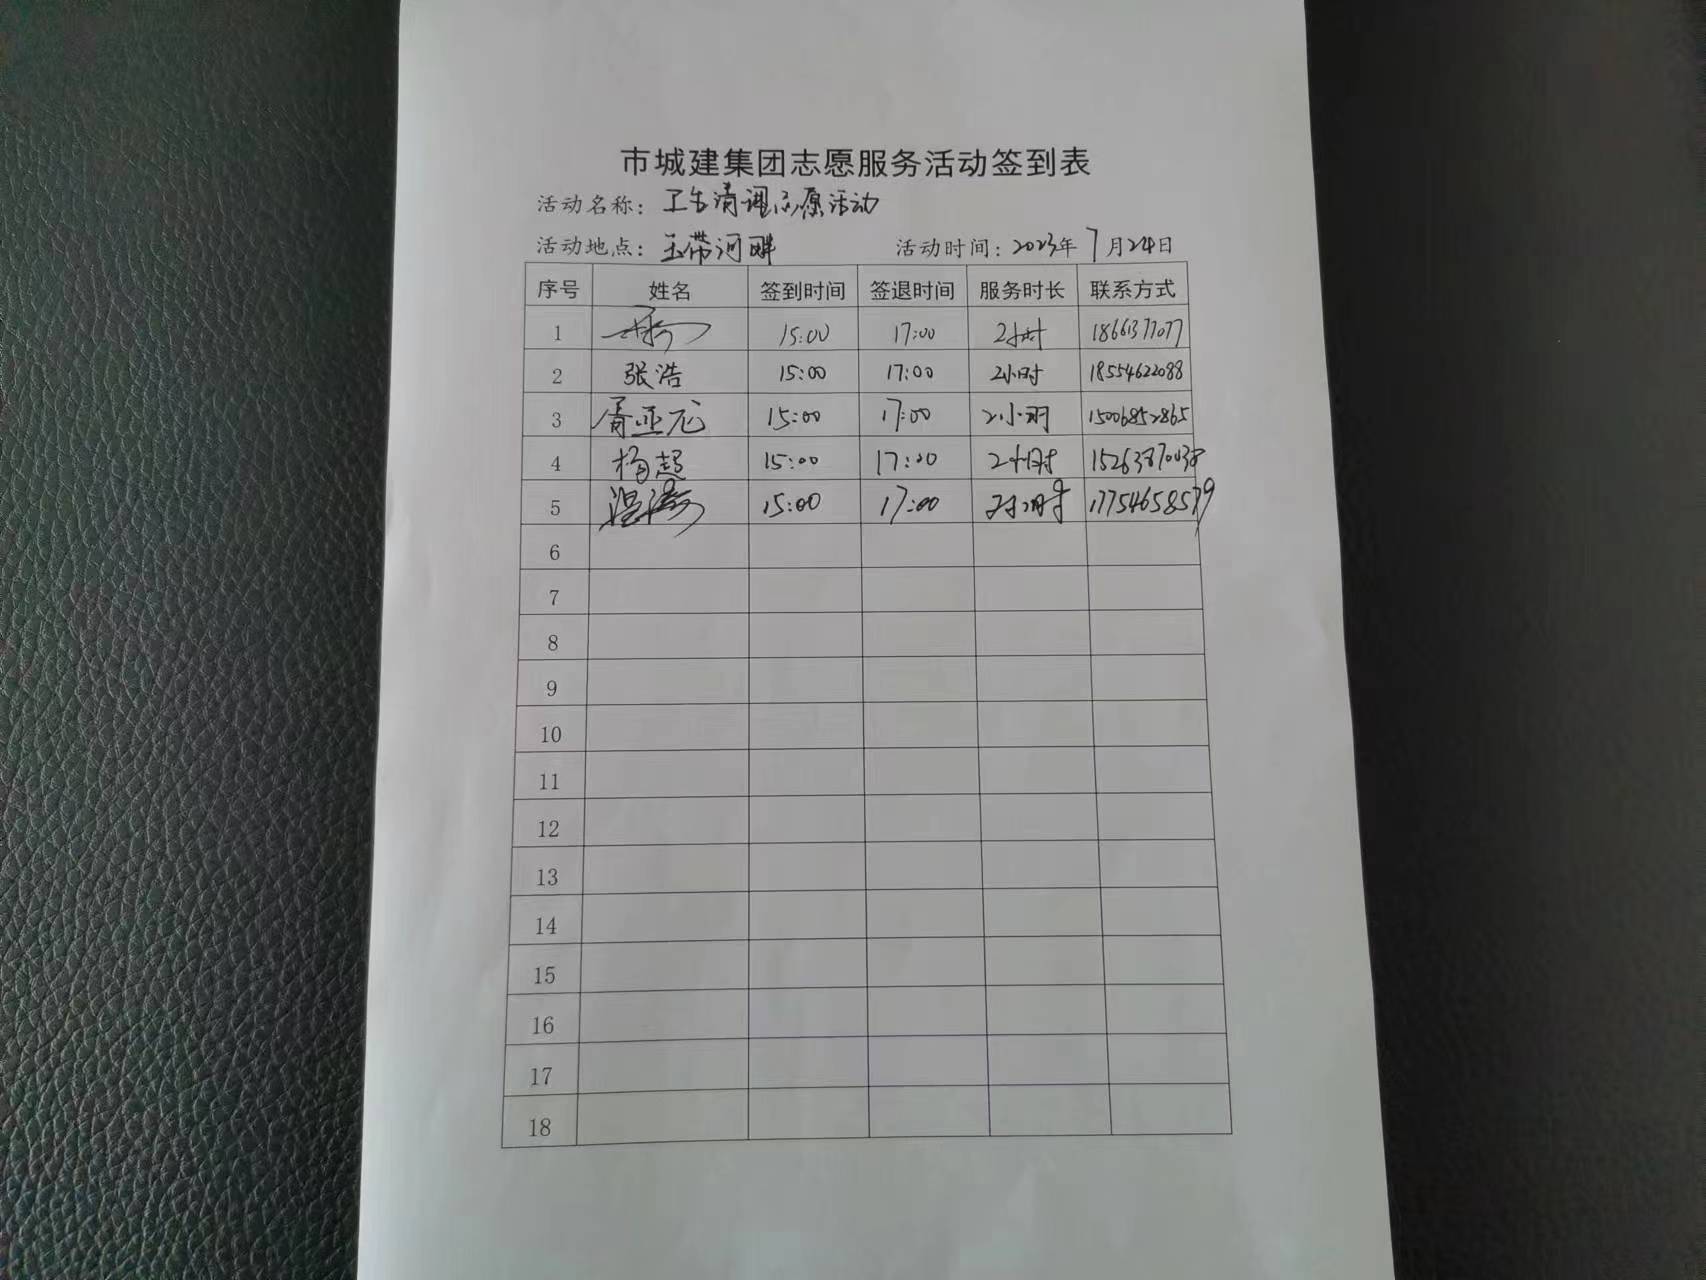 市城建集团志愿服务活动签到表
活动名称：卫生清理志愿活动
活动地点：玉带河畔 活动时间：2023年7月24日
序号 姓名 签到时间 签退时间 服务时长 联系方式
1 15:00 17:00 2小时 18661377077
2 张浩 15:00 17:00 2小时 18554622088
3 胥亚龙 15:00 17:00 2小时 15006852865
4 杨超 15:00 17:00 2小时 15263870038
5 温涛 15:00 17:00 2小时 17754658579
6
7
8
9
10
11
12
13
14
15
16
17
18